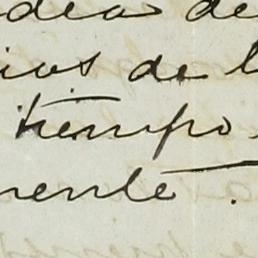 idea de
ios de l
tiempo.
mente.